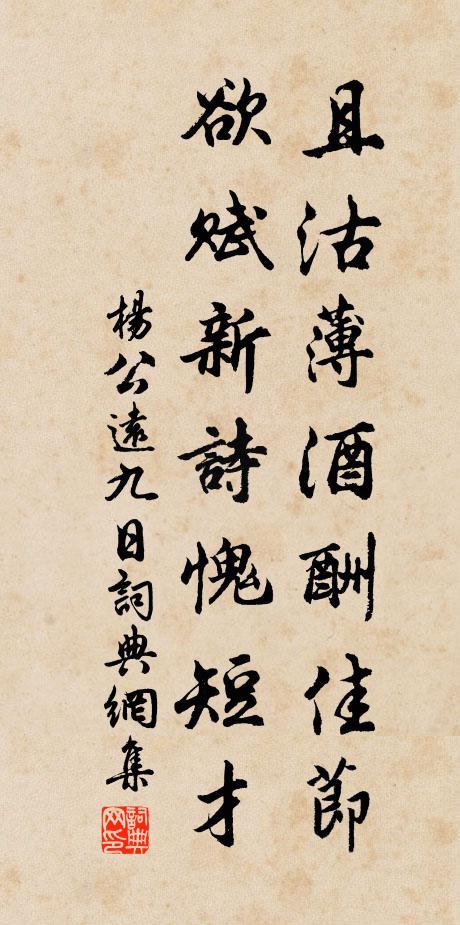 且沽薄酒酬佳節
欲賦新詩愧短才
楊公遠九日詞典網集
詞典网印